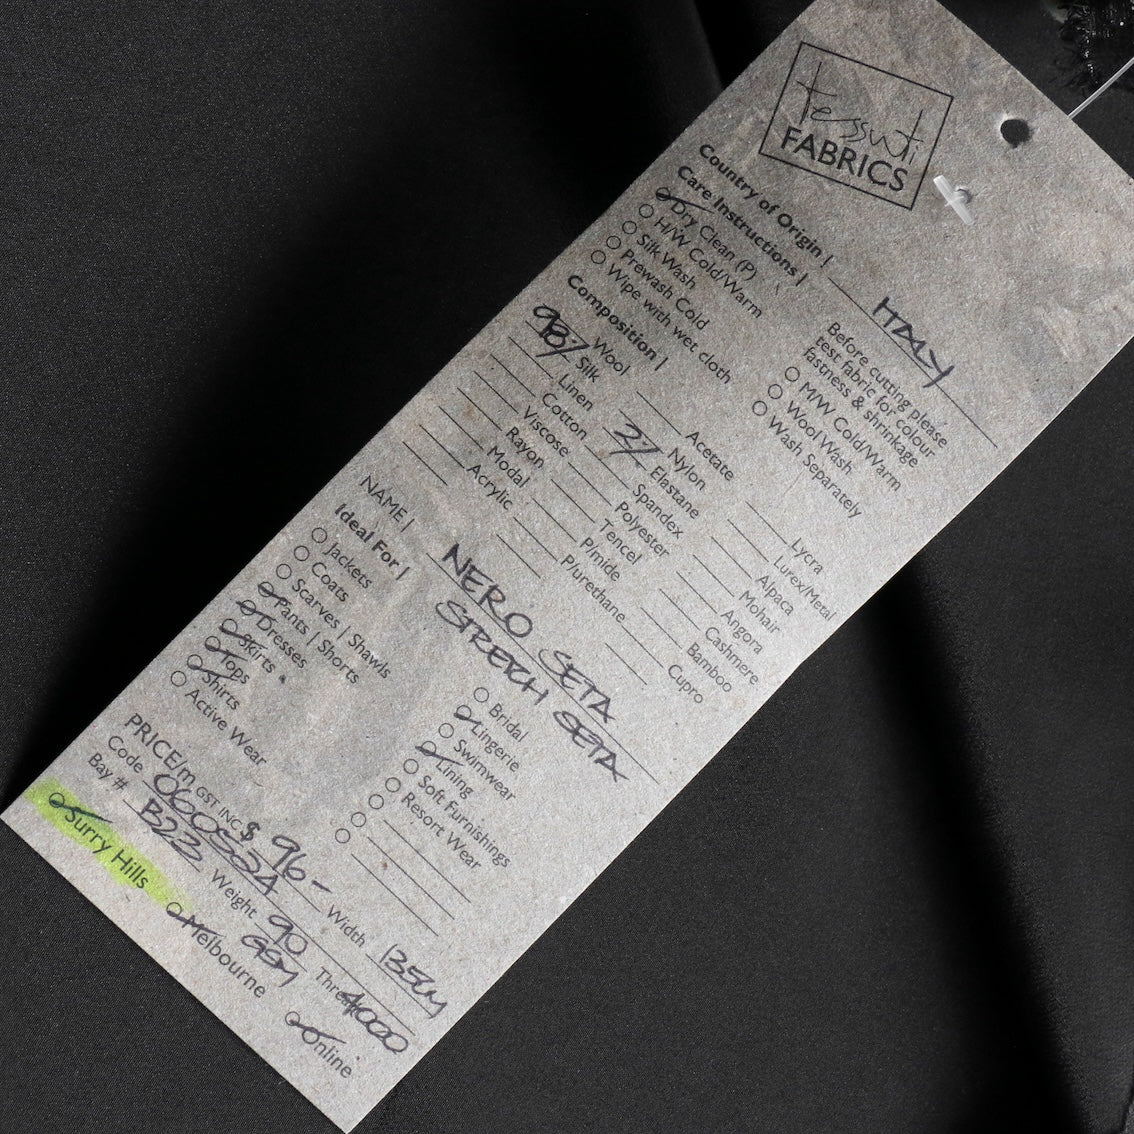 tessuti
FABRICS
Country of Origin | ITALY
Care Instructions |
Dry Clean (P)
H/W Cold/Warm
Silk Wash
Prewash Cold
Wipe with wet cloth
Before cutting please
test fabric for colour
fastness & shrinkage
M/W Cold/Warm
Wool Wash
Wash Separately
Composition |
Wool
98% Silk
Linen
Cotton
Viscose
Rayon
Modal
Acrylic
Acetate
Nylon
2% Elastane
Spandex
Polyester
Tencel
P/mide
P/urethane
Lycra
Lurex/Metal
Alpaca
Mohair
Angora
Cashmere
Bamboo
Cupro
NAME | NERO SETA
STRETCH SETA
Ideal For |
Jackets
Coats
Scarves | Shawls
Pants | Shorts
Dresses
Skirts
Tops
Shirts
Active Wear
Bridal
Lingerie
Swimwear
Lining
Soft Furnishings
Resort Wear
PRICE/m GST INC $ 96- Width 135cm
Code Weight 90 GSM Thread 4000
Bay # B23
Surry Hills
Melbourne
Online